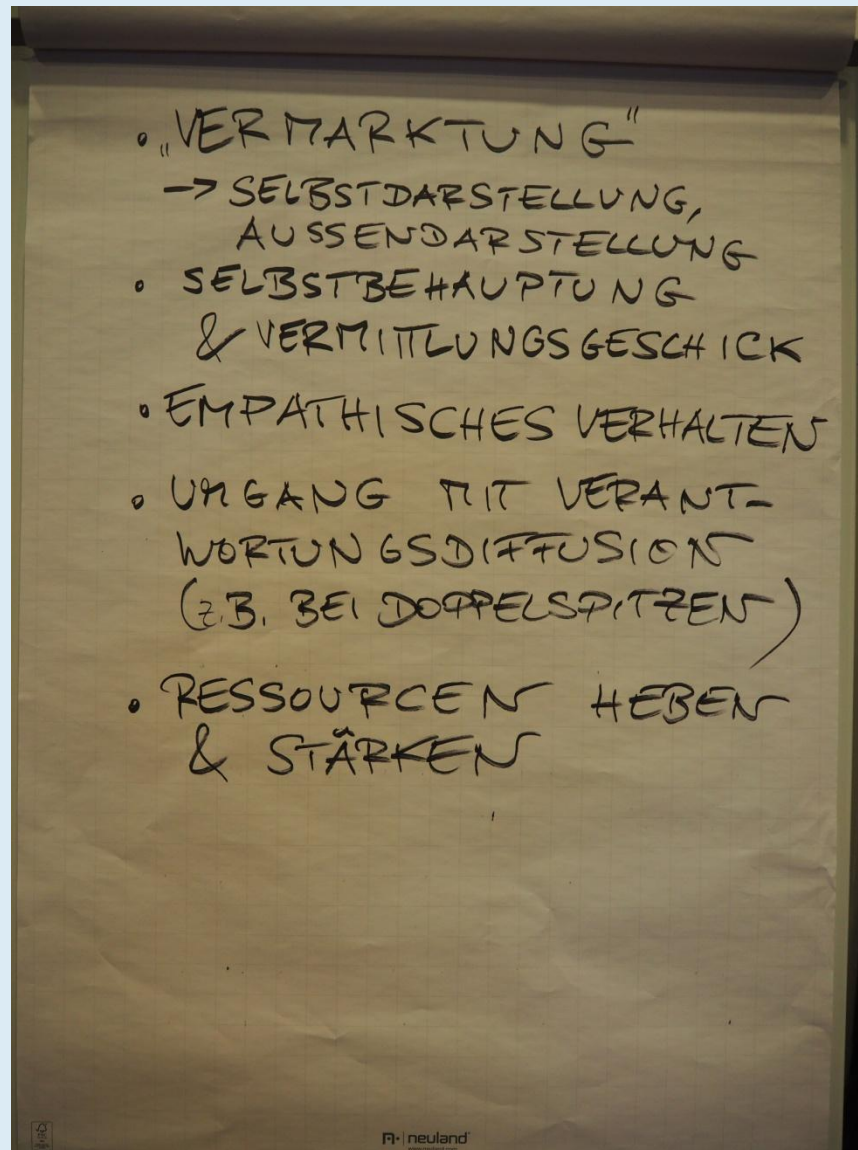 • „VERMARKTUNG"
-> SELBSTDARSTELLUNG,
AUSSENDARSTELLUNG
• SELBSTBEHAUPTUNG
& VERMITTLUNGSGESCHICK
• EMPATHISCHES VERHALTEN
• UMGANG MIT VERANT-
WORTUNGSDIFFUSION
(z.B. BEI DOPPELSPITZEN)
• RESSOURCEN HEBEN
& STÄRKEN
neuland